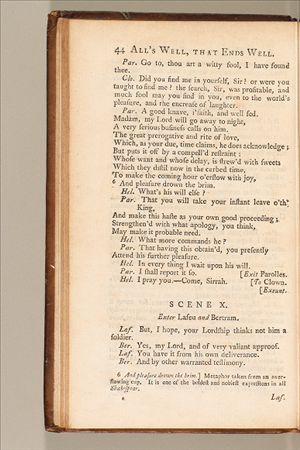 44 ALL'S WELL, THAT ENDS WELL.
Par. Go to, thou art a witty fool, I have found
thee.
Clo. Did you find me in yourself, Sir? or were you
taught to find me? the search, Sir, was profitable, and
much fool may you find in you, even to the world's
pleasure, and the encrease of laughter.
Par. A good knave, i'faith, and well fed.
Madam, my Lord will go away to night,
A very serious business calls on him.
The great prerogative and rite of love,
Which, as your due, time claims, he does acknowledge;
But puts it off by a compell'd restraint;
Whose want and whose delay, is strew'd with sweets
Which they distil now in the curbed time,
To make the coming hour o'erflow with joy,
6 And pleasure drown the brim.
Hel. What's his will else?
Par. That you will take your instant leave o'th'
King,
And make this haste as your own good proceeding;
Strengthen'd with what apology, you think,
May make it probable need.
Hel. What more commands he?
Par. That having this obtain'd, you presently
Attend his further pleasure.
Hel. In every thing I wait upon his will.
Par. I shall report it so. [Exit Parolles.
Hel. I pray you.—Come, Sirrah. [To Clown.
[Exeunt.
SCENE X.
Enter Lafeu and Bertram.
Laf. But, I hope, your Lordship thinks not him a
soldier.
Ber. Yes, my Lord, and of very valiant approof.
Laf. You have it from his own deliverance.
Ber. And by other warranted testimony.
6 And pleasure drown the brim.] Metaphor taken from an over-
flowing cup. It is one of the boldest and noblest expressions in all
Shakespear.
Laf.